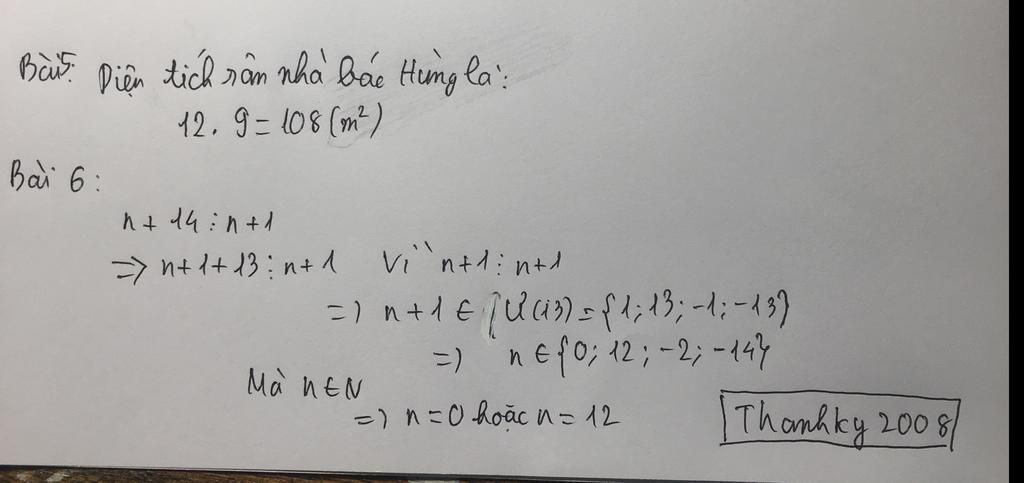 Bài 5: Diện tích sân nhà bác Hùng là:
12. 9 = 108 (m²)
Bài 6:
n + 14 ⋮ n + 1
=> n + 1 + 13 ⋮ n + 1 Vì n + 1 ⋮ n + 1
=> n + 1 ∈ Ư(13) = {1; 13; -1; -13}
=> n ∈ {0; 12; -2; -14}
Mà n ∈ N
=> n = 0 hoặc n = 12
Thanhky 2008